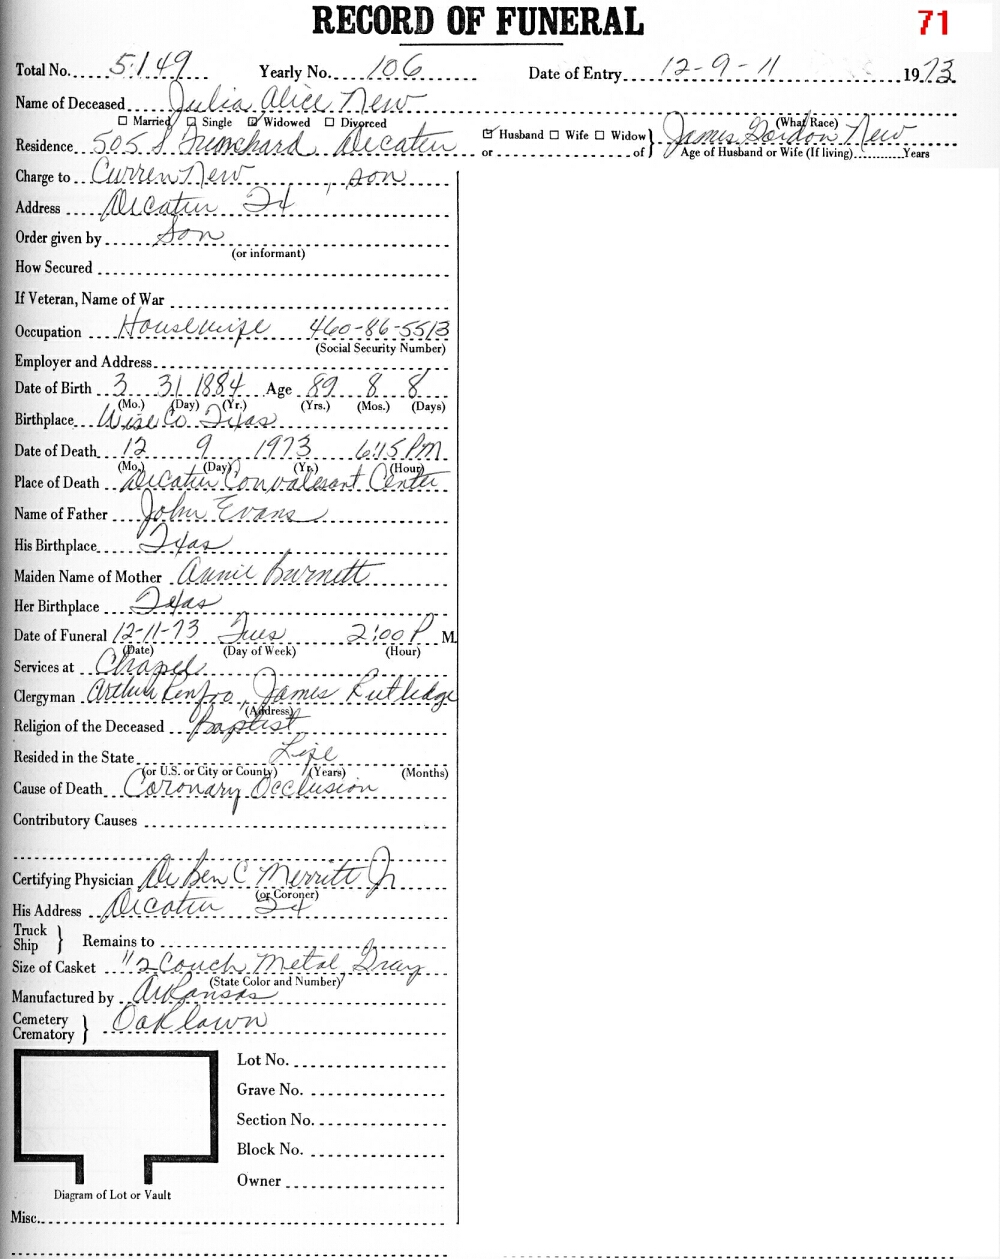 RECORD OF FUNERAL
71
Total No. 5149 Yearly No. 106 Date of Entry 12-9-11 1973
Name of Deceased Julia Alice New
☐ Married ☐ Single ☑ Widowed ☐ Divorced (What Race)
Residence 505 S Trinchard Decatur ☑ Husband ☐ Wife ☐ Widow } James Gordon New
or of Age of Husband or Wife (If living) Years
Charge to Curren New, son
Address Decatur Tx
Order given by Son
(or informant)
How Secured
If Veteran, Name of War
Occupation Housewife 460-86-5513
(Social Security Number)
Employer and Address
Date of Birth 3 31 1884 Age 89 8 8
(Mo.) (Day) (Yr.) (Yrs.) (Mos.) (Days)
Birthplace Wise Co. Texas
Date of Death 12 9 1973 6:15 PM
(Mo.) (Day) (Yr.) (Hour)
Place of Death Decatur Convalesant Center
Name of Father John Evans
His Birthplace Texas
Maiden Name of Mother Annie Burnett
Her Birthplace Texas
Date of Funeral 12-11-73 Tues 2:00 P M.
(Date) (Day of Week) (Hour)
Services at Chapel
Clergyman Arthur Renfro, James Rutledge
(Address)
Religion of the Deceased Baptist
Resided in the State Life
(or U.S. or City or County) (Years) (Months)
Cause of Death Coronary Occlusion
Contributory Causes
Certifying Physician Dr Ben C Merritt Jr
(or Coroner)
His Address Decatur Tx
Truck
Ship } Remains to
Size of Casket 1/2 Couch Metal Gray
(State Color and Number)
Manufactured by Arkansas
Cemetery
Crematory } Oaklawn
Lot No.
Grave No.
Section No.
Block No.
Owner
Diagram of Lot or Vault
Misc.